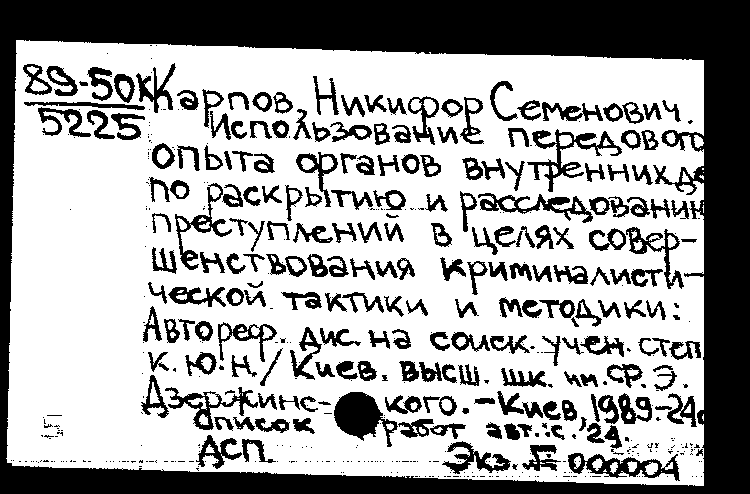 89-50к
5225
Карпов, Никифор Семенович.
Использование передового
опыта органов внутренних де
по раскрытию и расследовании
преступлений в целях совер-
шенствования криминалисти-
ческой тактики и методики:
Автореф. дис. на соиск. учен. степ.
к. ю. н. / Киев. высш. шк. им. Ф. Э.
Дзержинс- кого. - Киев, 1989. - 24с
Список работ авт.: с. 24.
ДСП. Экз. № 000004